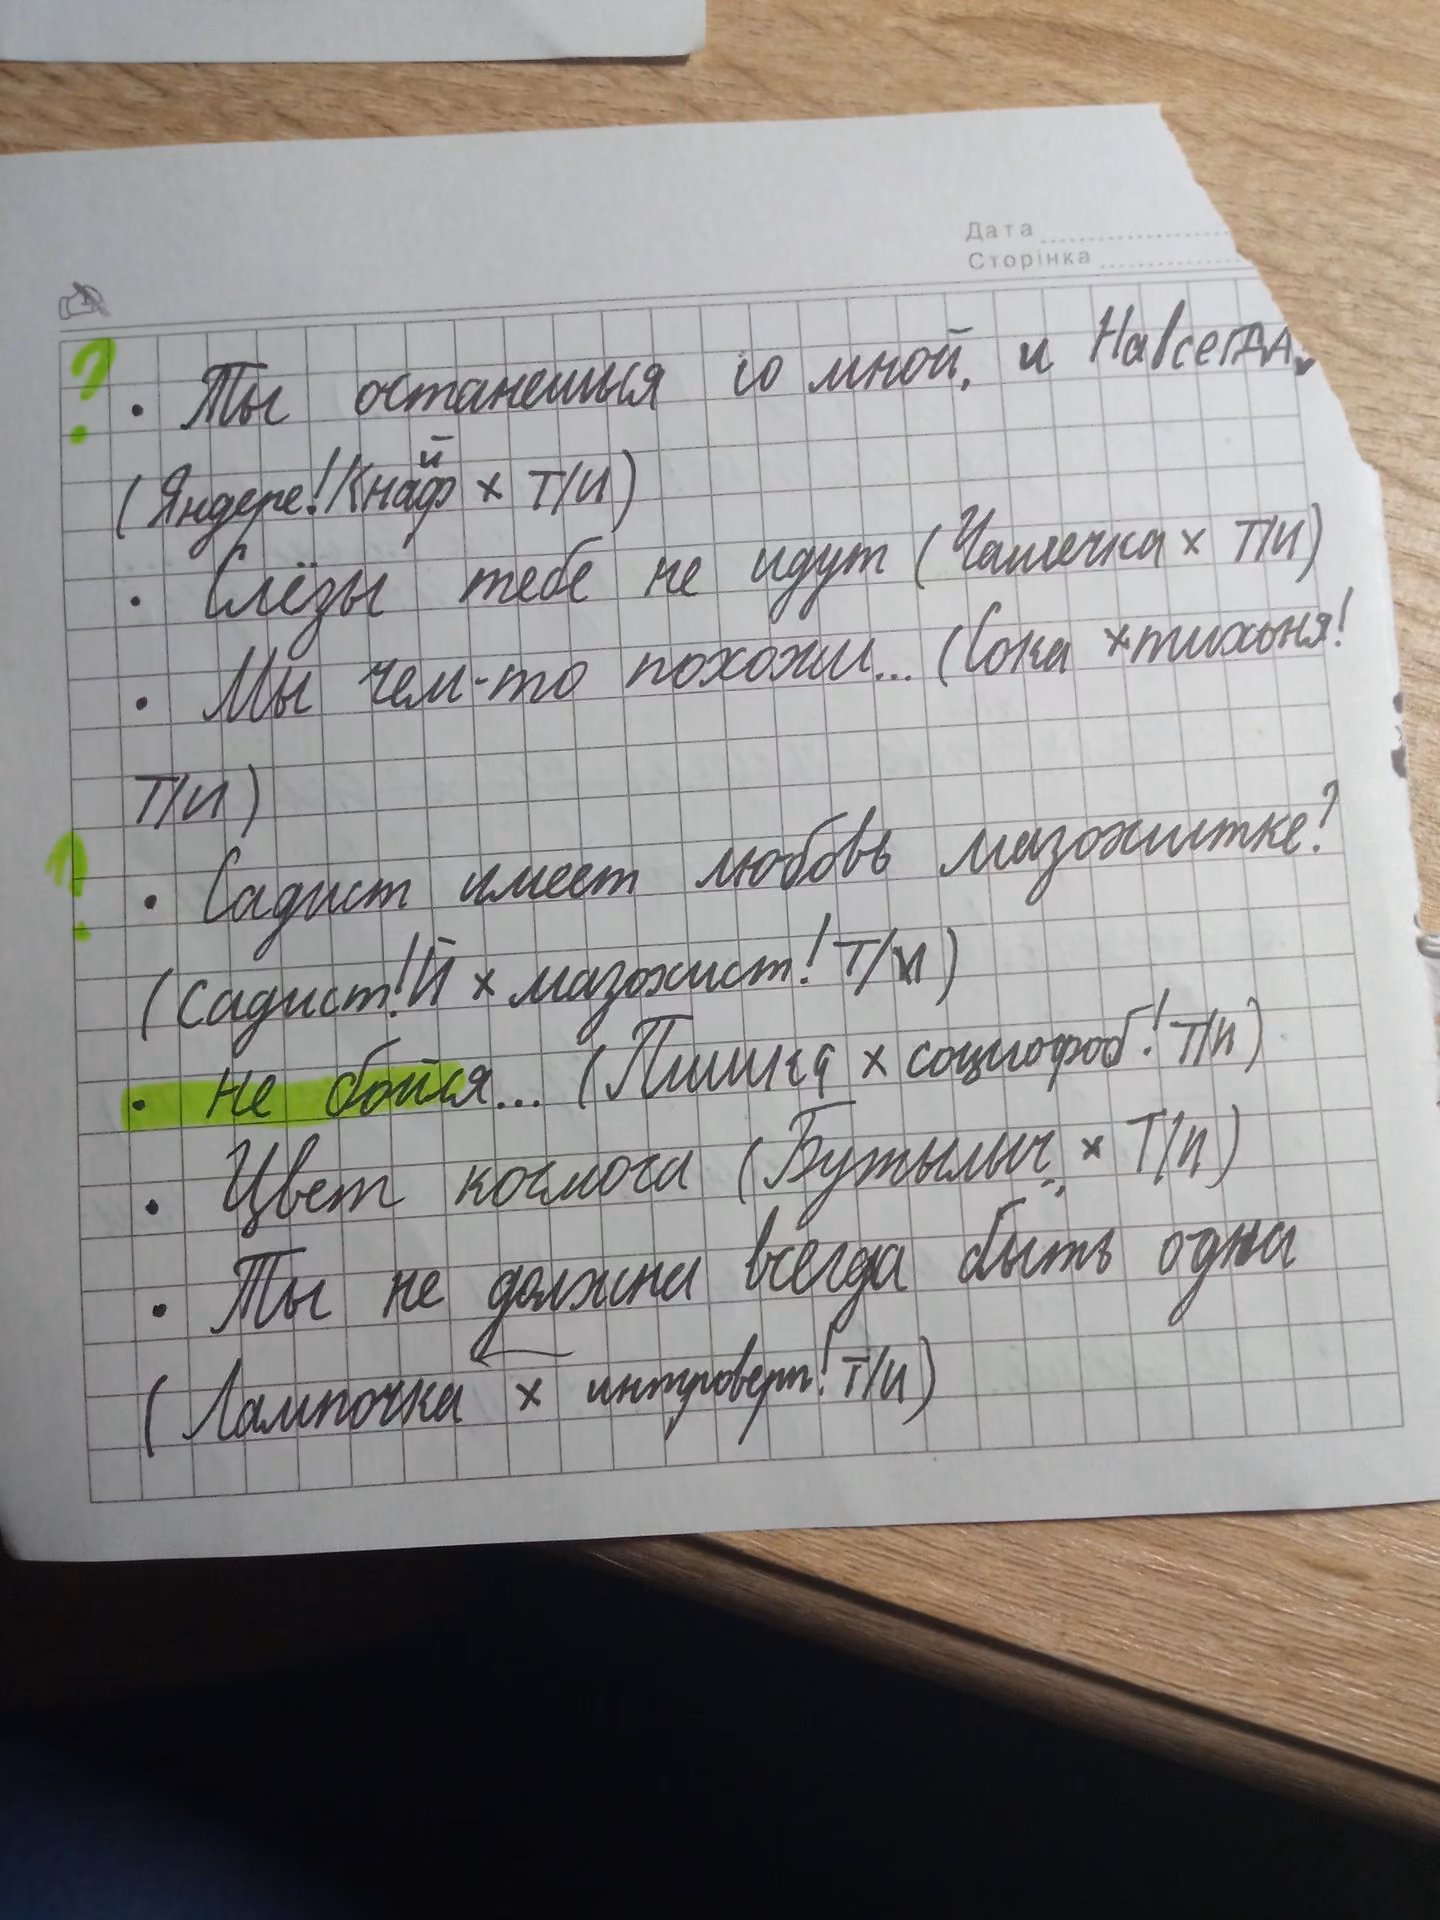 Дата
Сторінка
?
• Ты останешься со мной, и НавсегДА.
(Яндере! Кнайф × Т/И)
• Слёзы тебе не идут (Чашечка × Т/И)
• Мы чем-то похожи... (Сока × тихоня!
Т/И)
?
• Садист имеет любовь мазохистке?
(Садист! Й × мазохист! Т/И)
• Не бойся... ( × социофоб! Т/И)
• Цвет космоса (Бутылыч × Т/И)
• Ты не должна всегда быть одна
(Лампочка × интроверт! Т/И)